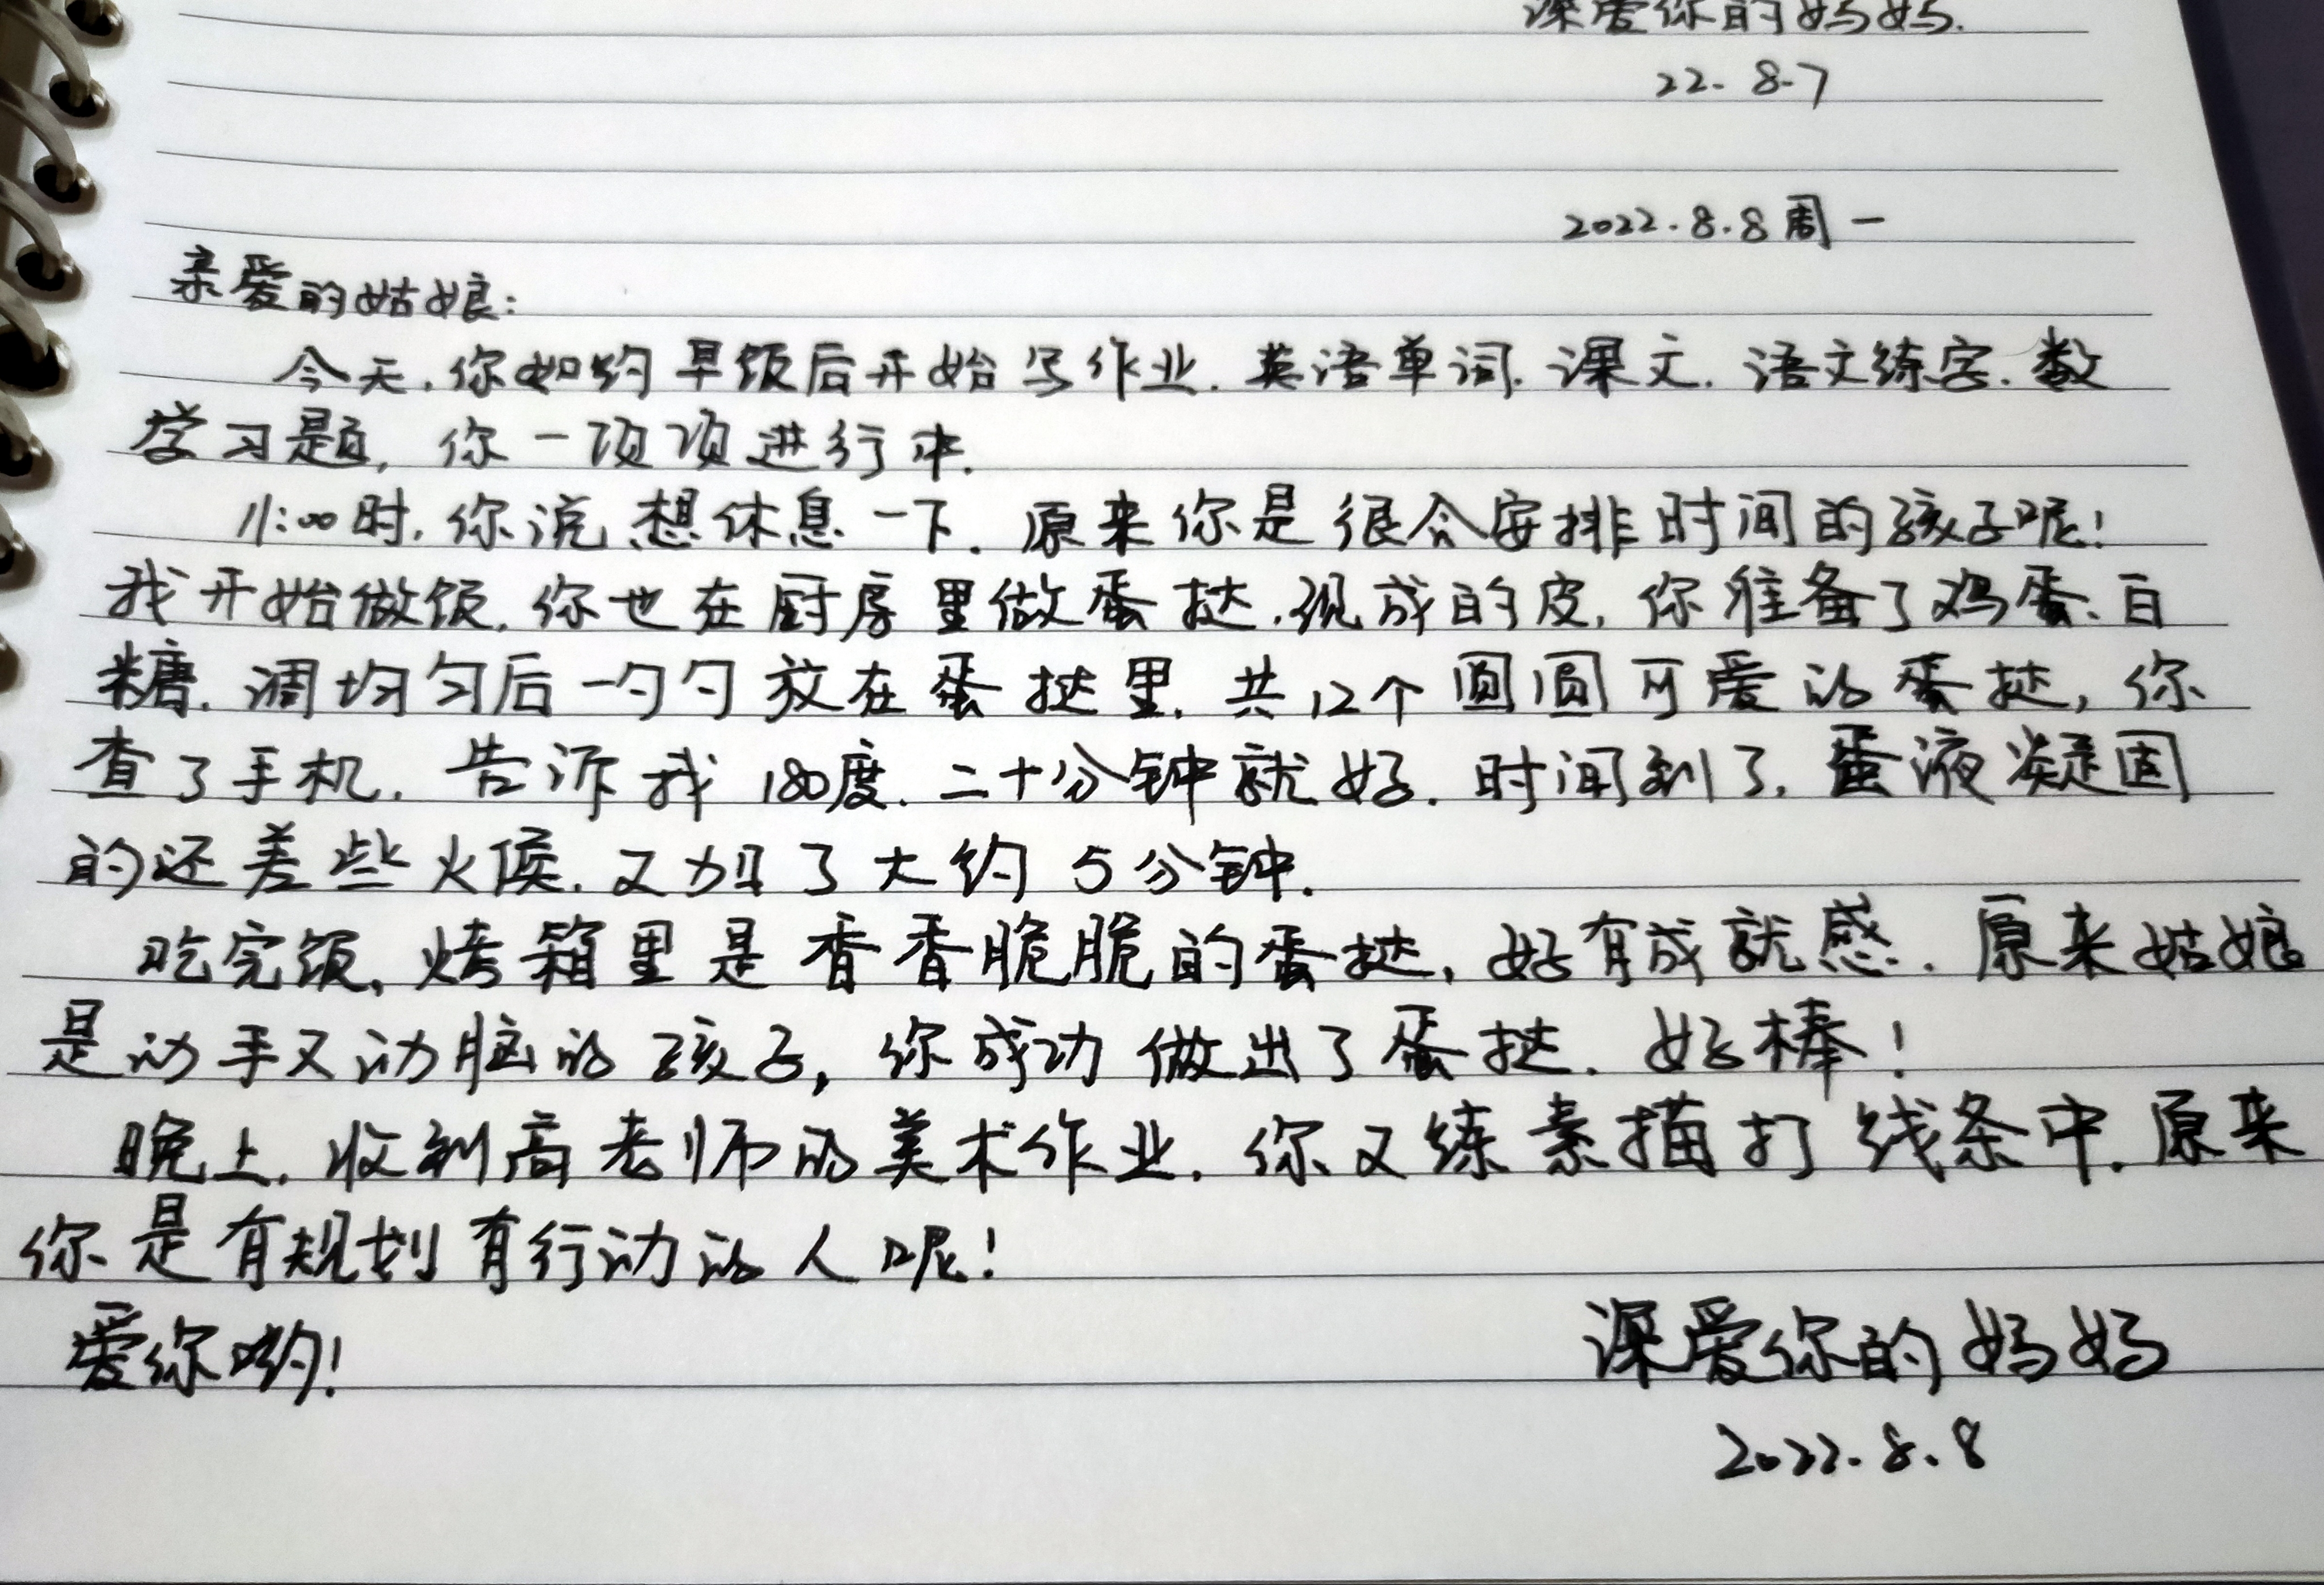 深爱你的妈妈.
22.8.7
2022.8.8周一
亲爱的姑娘:
今天,你如约早饭后开始写作业.英语单词.课文.语文练字.数
学习题,你一项项进行中.
11:00时,你说想休息一下.原来你是很会安排时间的孩子呢!
我开始做饭,你也在厨房里做蛋挞.现成的皮,你准备了鸡蛋、白
糖.调均匀后一勺勺放在蛋挞里.共12个圆圆可爱的蛋挞,你
查了手机.告诉我180度.二十分钟就好.时间到了,蛋液凝固
的还差些火候.又加了大约5分钟.
吃完饭,烤箱里是香香脆脆的蛋挞,好有成就感.原来姑娘
是动手又动脑的孩子,你成功做出了蛋挞.好棒!
晚上.收到高老师的美术作业.你又练素描打线条中.原来
你是有规划有行动的人呢!
爱你哟!
深爱你的妈妈
2022.8.8